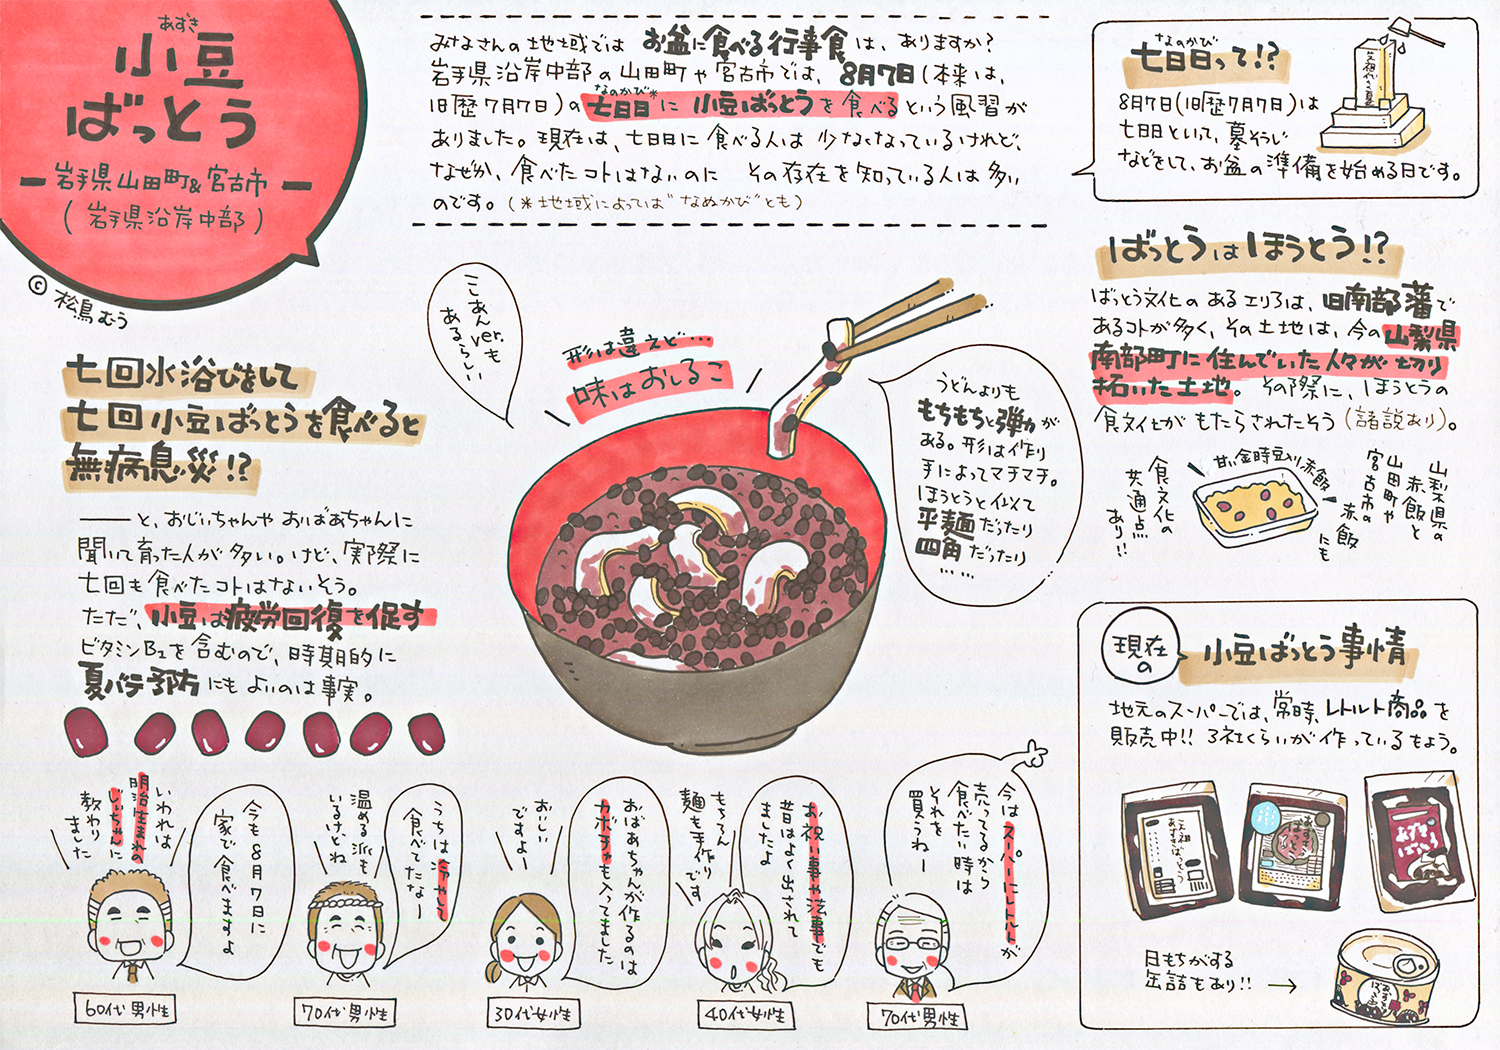 あずき
小豆
ばっとう
岩手県山田町&宮古市
(岩手県沿岸中部)
© 松鳥むう
みなさんの地域では お盆に食べる行事食は、ありますか?
岩手県沿岸中部の山田町や宮古市では、8月7日(本来は、
旧歴7月7日)の七日日*に 小豆ばっとうを食べるという風習が
なのかび
ありました。現在は、七日日に食べる人は少なくなっているけれど、
なぜか、食べたコトはないのに その存在を知っている人は多い
のです。(*地域によっては"なぬかび"とも)
なのかび
七日日って!?
8月7日(旧歴7月7日)は
七日日といって、墓そうじ
などをして、お盆の準備を始める日です。
先祖代々之墓
ばっとうはほうとう!?
ばっとう文化のあるエリアは、旧南部藩で
あるコトが多く、その土地は、今の山梨県
南部町に住んでいた人々が切り
拓いた土地。その際に、ほうとうの
食文化がもたらされたそう(諸説あり)。
山梨県の
赤飯と
山田町や
宮古市の
赤飯
にも
甘い金時豆入り赤飯
食文化の
共通点
あり!!
こしあん
ver.も
あるらしい
形は違えど…
味はおしるこ
うどんよりも
もちもちと弾力が
ある。形は作り
手によってマチマチ。
ほうとうと似て
平麺だったり
四角だったり
……
七回水浴びをして
七回小豆ばっとうを食べると
無病息災!?
――と、おじいちゃんやおばあちゃんに
聞いて育った人が多い。けど、実際に
七回も食べたコトはないそう。
ただ、小豆は疲労回復を促す
ビタミンB1を含むので、時期的に
夏バテ予防にもよいのは事実。
今も8月7日に
家で食べますよ
いわれは
明治生まれの
じいちゃんに
教わりました
60代男性
うちは冷やして
食べてたなー
温める派も
いるけどね
70代男性
おばあちゃんが作るのは
カボチャも入ってました
おいしい
ですよー
30代女性
お祝い事や法事でも
昔はよく出されて
ましたよ
もちろん
麺も手作り
です
40代女性
今はスーパーにレトルトが
売ってるから
食べたい時は
それを
買うねー
70代男性
現在
の
小豆ばっとう事情
地元のスーパーでは、常時、レトルト商品を
販売中!! 3社くらいが作っているもよう。
元祖
あずきばっとう
あずき
ばっとう
日もちがする
缶詰もあり!! →